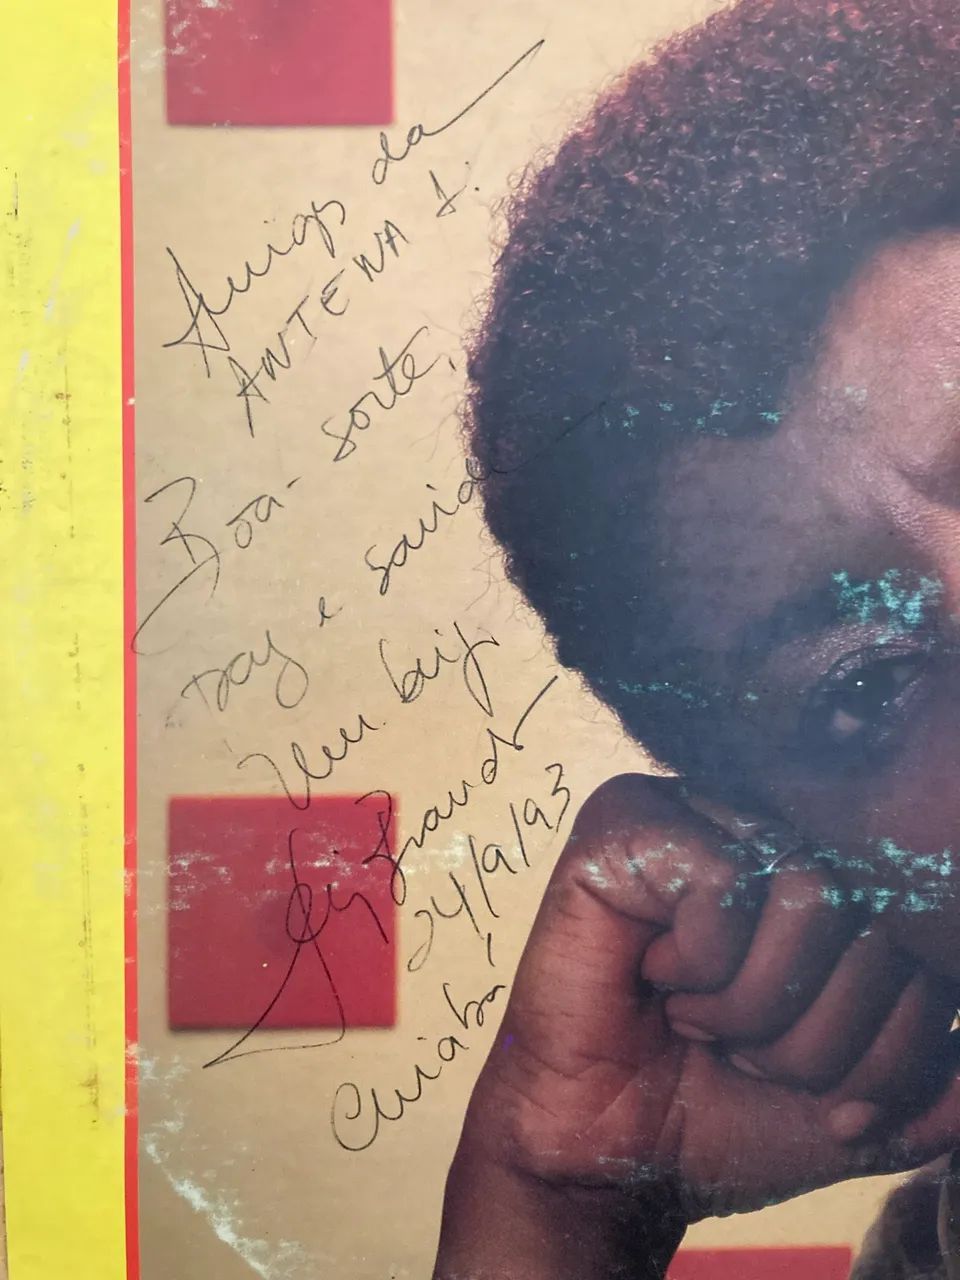 Amigos da
ANTENA 1.
Boa-sorte,
Paz e saúde
Um beijo
24/9/93
Cuiabá